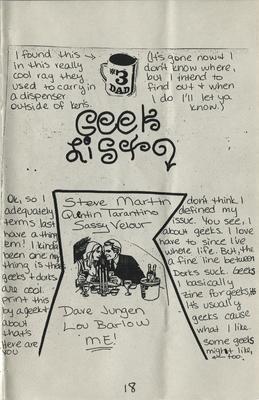 I found this →
in this really
cool rag they
used to carry in
a dispenser
outside of ken's.
#3
DAD
(It's gone now & I
don't know where,
but I intend to
find out & when
I do I'll let ya
know.)
Geek
List
Ok, so I
adequately
terms last
have a thing
'em! I kinda
been one my
thing is that
geeks & dorks.
are cool.
print this
by a geek &
about
that's
Here are
you
Steve Martin
Quentin Tarantino
Sassy Velour
Dave Jurgen
Lou Barlow
ME!
don't think I
defined my
issue. You see, I
about geeks. I love
have to since I've
whole life. But, the
a fine line between
Dorks suck. Geeks
I basically
zine for geeks,
It's usually
geeks cause
what I like.
some geeks
might like,
too.
18